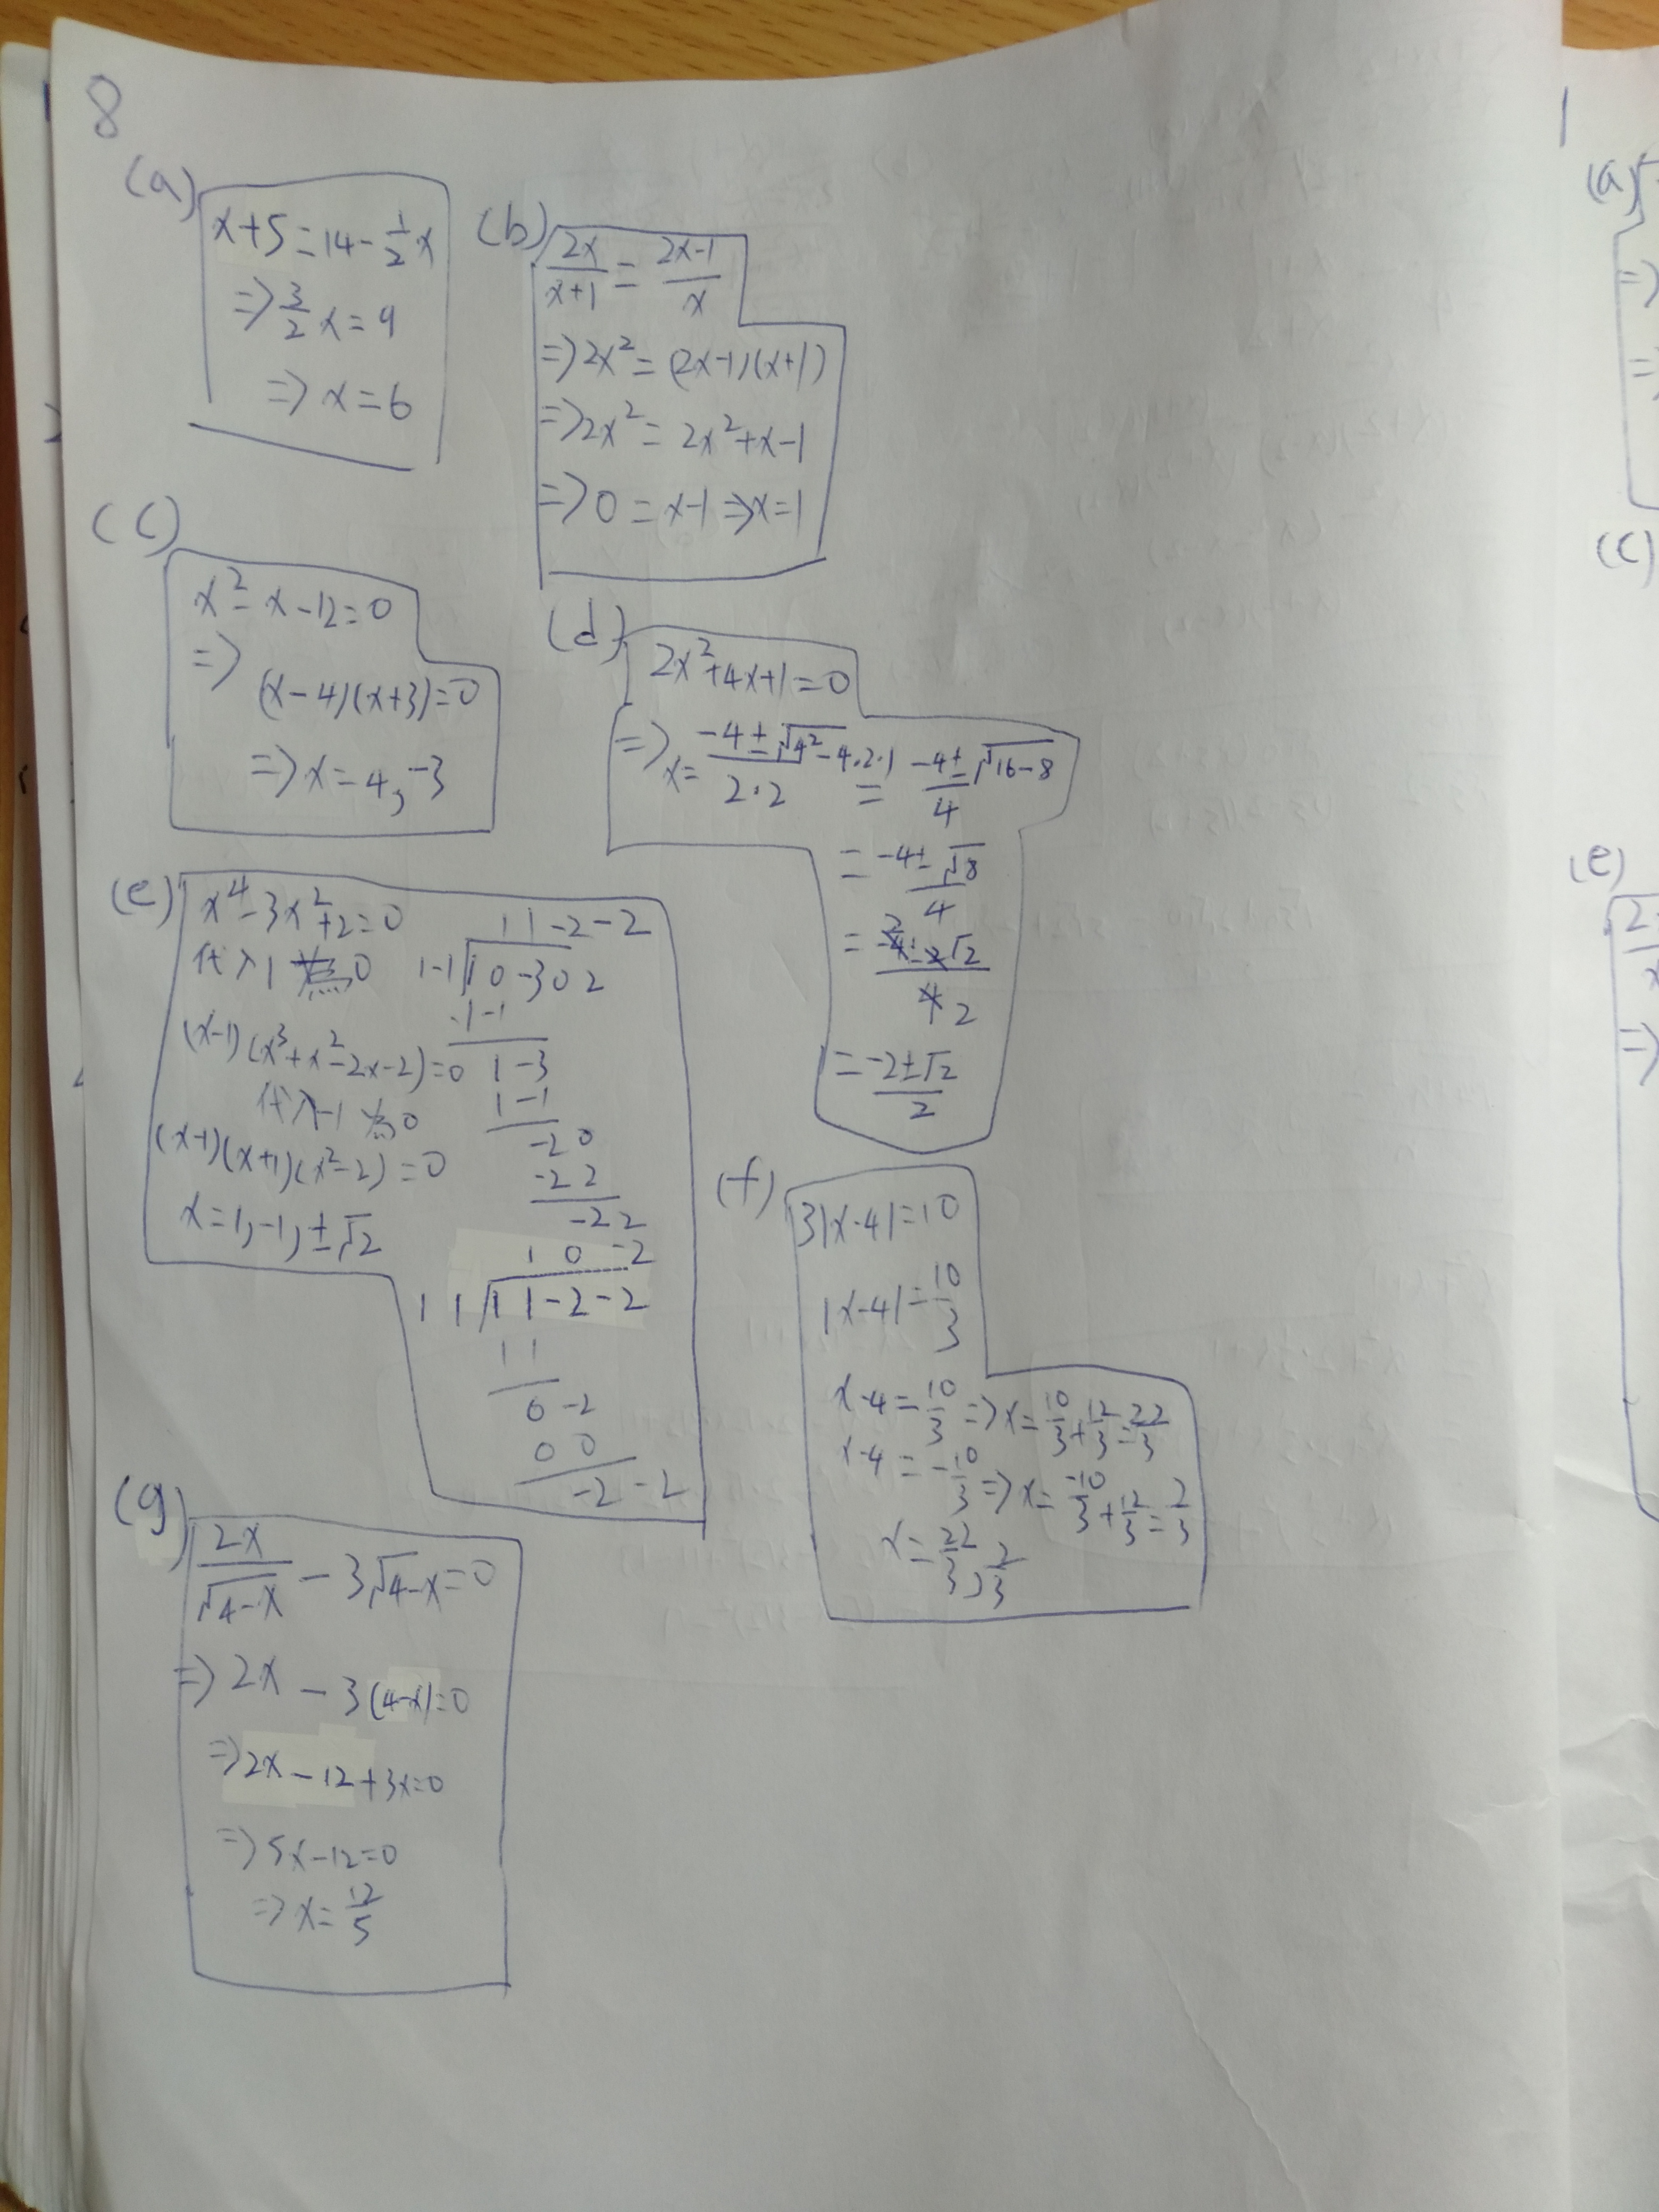 8
(a)
x+5=14-½x
=> 3/2 x=9
=> x=6
(b)
2x/(x+1) = (2x-1)/x
=> 2x² = (2x-1)(x+1)
=> 2x² = 2x²+x-1
=> 0 = x-1 => x=1
(c)
x²-x-12=0
=>
(x-4)(x+3)=0
=> x=4,-3
(d)
2x²+4x+1=0
=> x= (-4±√4²-4·2·1)/(2·2) = (-4±√16-8)/4
= (-4±√8)/4
= (-4±2√2)/4 2
= (-2±√2)/2
(e)
x⁴-3x²+2=0
代入1 0
(x-1)(x³+x²-2x-2)=0
代入-1 為0
(x-1)(x+1)(x²-2)=0
x=1,-1,±√2
1 1 -2 -2
1-1 1 0 -3 0 2
1 -1
1 -3
1 -1
-2 0
-2 2
-2 2
1 0 -2
1 1 1 1 -2 -2
1 1
0 -2
0 0
-2 -2
(f)
3|x-4|=10
|x-4|=10/3
x-4=10/3 => x=10/3+12/3=22/3
x-4=-10/3 => x=-10/3+12/3=2/3
x=22/3,2/3
(g)
2x/√4-x - 3√4-x=0
=> 2x - 3(4-x)=0
=> 2x-12+3x=0
=> 5x-12=0
=> x=12/5
1
(a)
=>
=>
(c)
(e)
2
=>